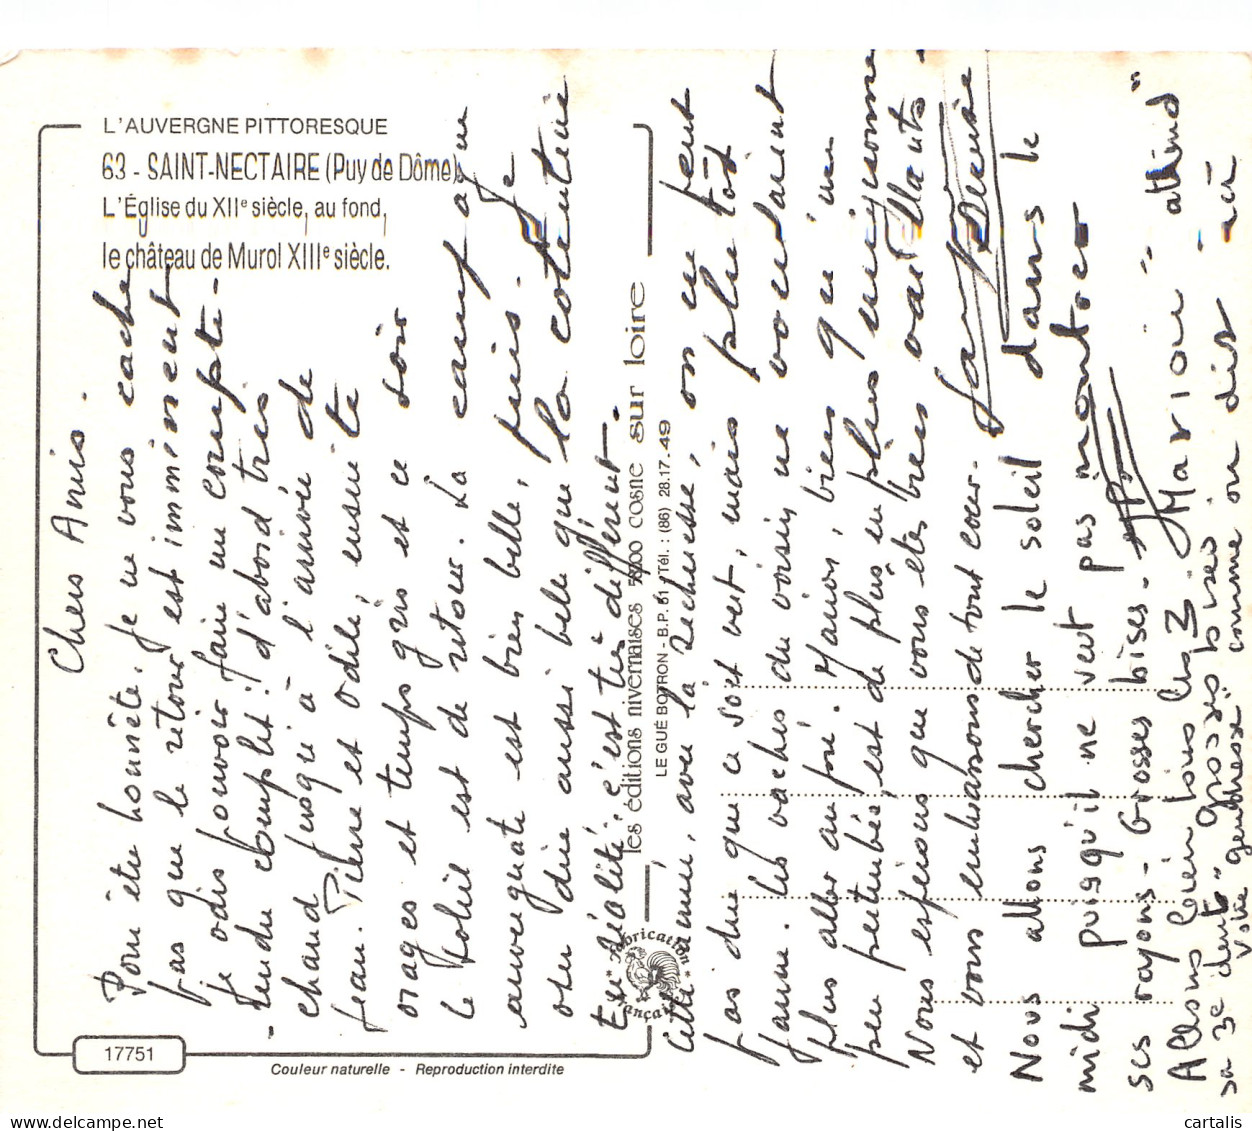 L'AUVERGNE PITTORESQUE
63 - SAINT-NECTAIRE (Puy de Dôme)
L'Église du XIIe siècle, au fond,
le château de Murol XIIIe siècle.
Chers Amis.
Pour être honnête, je ne vous cache
pas que le retour est imminent
Je dois pouvoir faire un compte-
-rendu complet! d'abord très
chaud jusqu'à l'arrivée de
Jean. Pierre et Odile, ensuite
orages et temps gris et ce soir
le soleil est de retour. La campagne
auvergnate est bien belle, puis. Je
dire aussi belle que la cotentine
En réalité, c'est très différent.
Cette année, avec la sécheresse, on ne peut
pas dire que ce soit vert, mais plutôt
jaune. Les vaches du voisin ne voudraient
plus aller au pré. Marion, bien qu'un
peu perturbée, est de plus en plus mignonne
Nous espérons que vous êtes bien vaillants
et vous embrassons de tout cœur.
Denise
Nous allons chercher le soleil dans le
midi puisqu'il ne veut pas montrer
ses rayons - Grosses bises.
Allons bien tous les 3. Marion "attend"
sa 3e dent, grosses bises à
Votre comme on dit
les éditions nivernaises 58200 cosne sur loire
LE GUÉ BOTRON - B.P. 61 Tél. : (86) 28.17.49
Fabrication Française
17751
Couleur naturelle - Reproduction interdite
cartalis